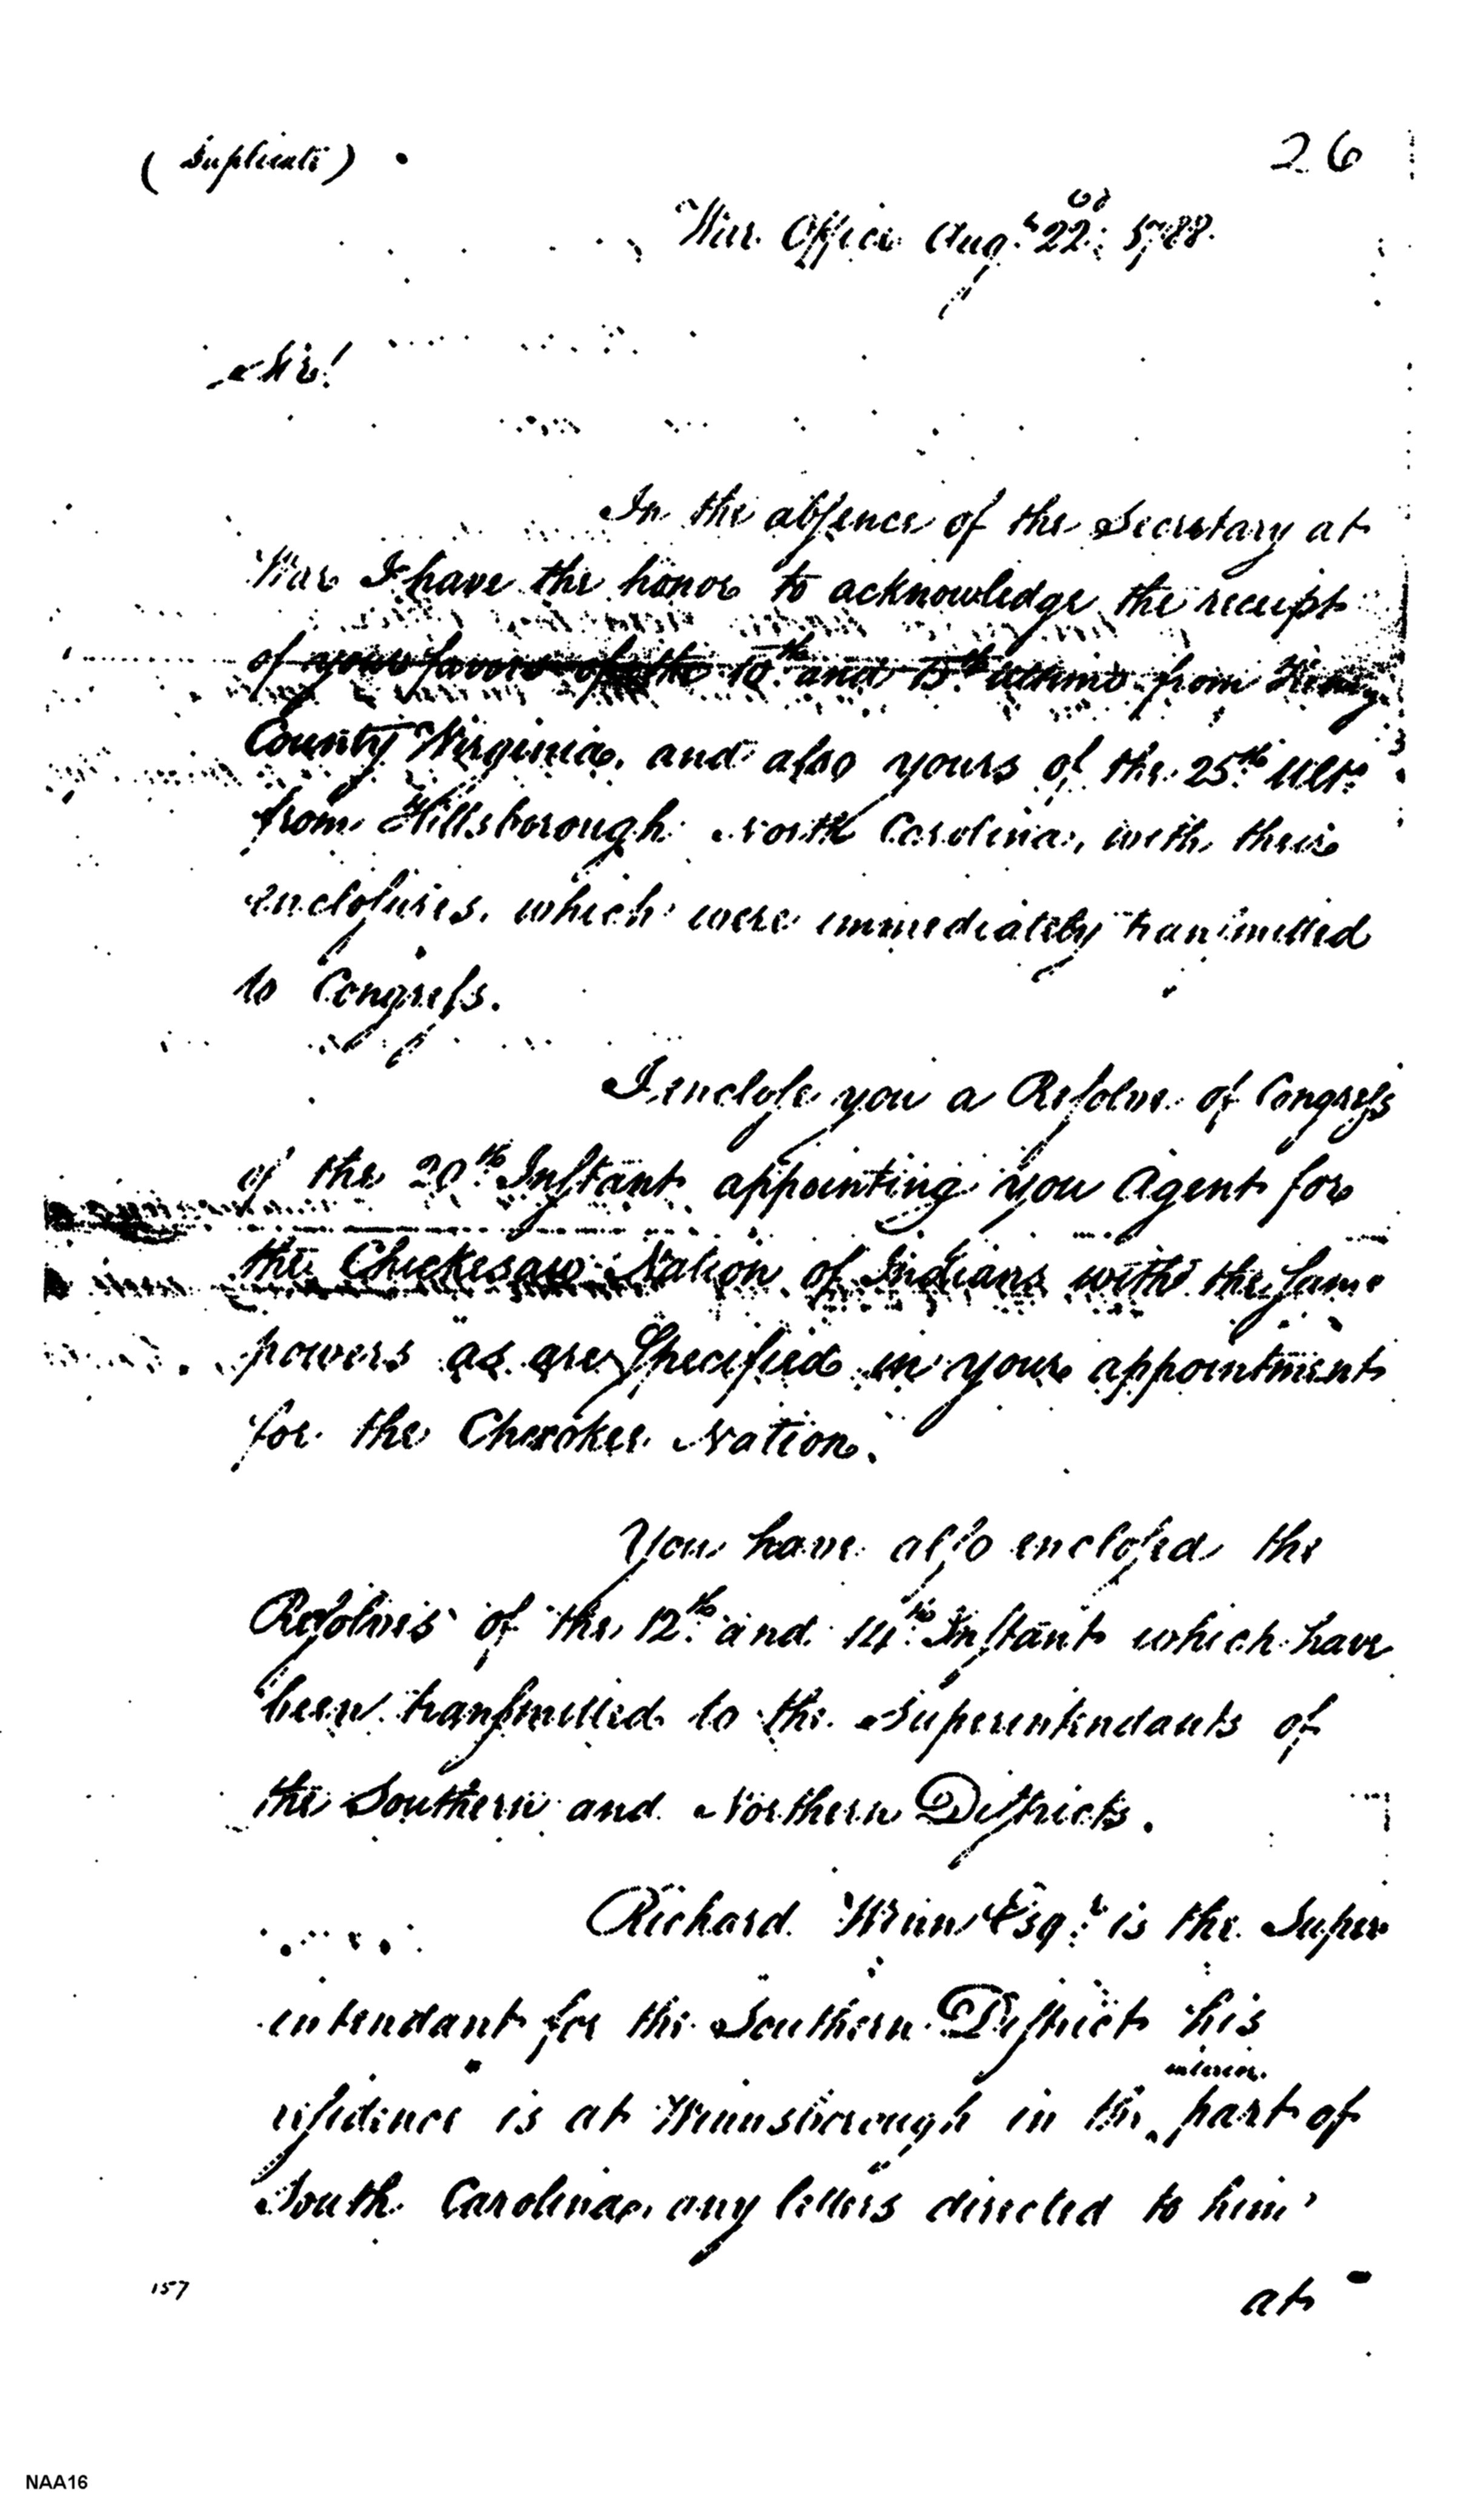 (Duplicate)
26
War Office Augt 22d: 1788.
Sir!
In the absence of the Secretary at
War I have the honor to acknowledge the receipt
of your favors of the 10th and 15th ultimo from Henry
County Virginia, and also yours of the 25th Ulto
from Hillsborough North Carolina, with their
enclosures, which were immediately transmitted
to Congress.
I enclose you a Resolve of Congress
of the 20th Instant appointing you Agent for
the Chickesaw Nation of Indians with the same
powers as are Specified in your appointment
for the Cherokee Nation.
You have also enclosed the
Resolves of the 12th and 14th Instant which have
been transmitted to the Superintendants of
the Southern and Northern Districts.
Richard Winn Esqr. is the Super
intendant for the Southern District his
residence is at Winnsborough in the interior part of
South Carolina, any letters directed to him
at
157
NAA16